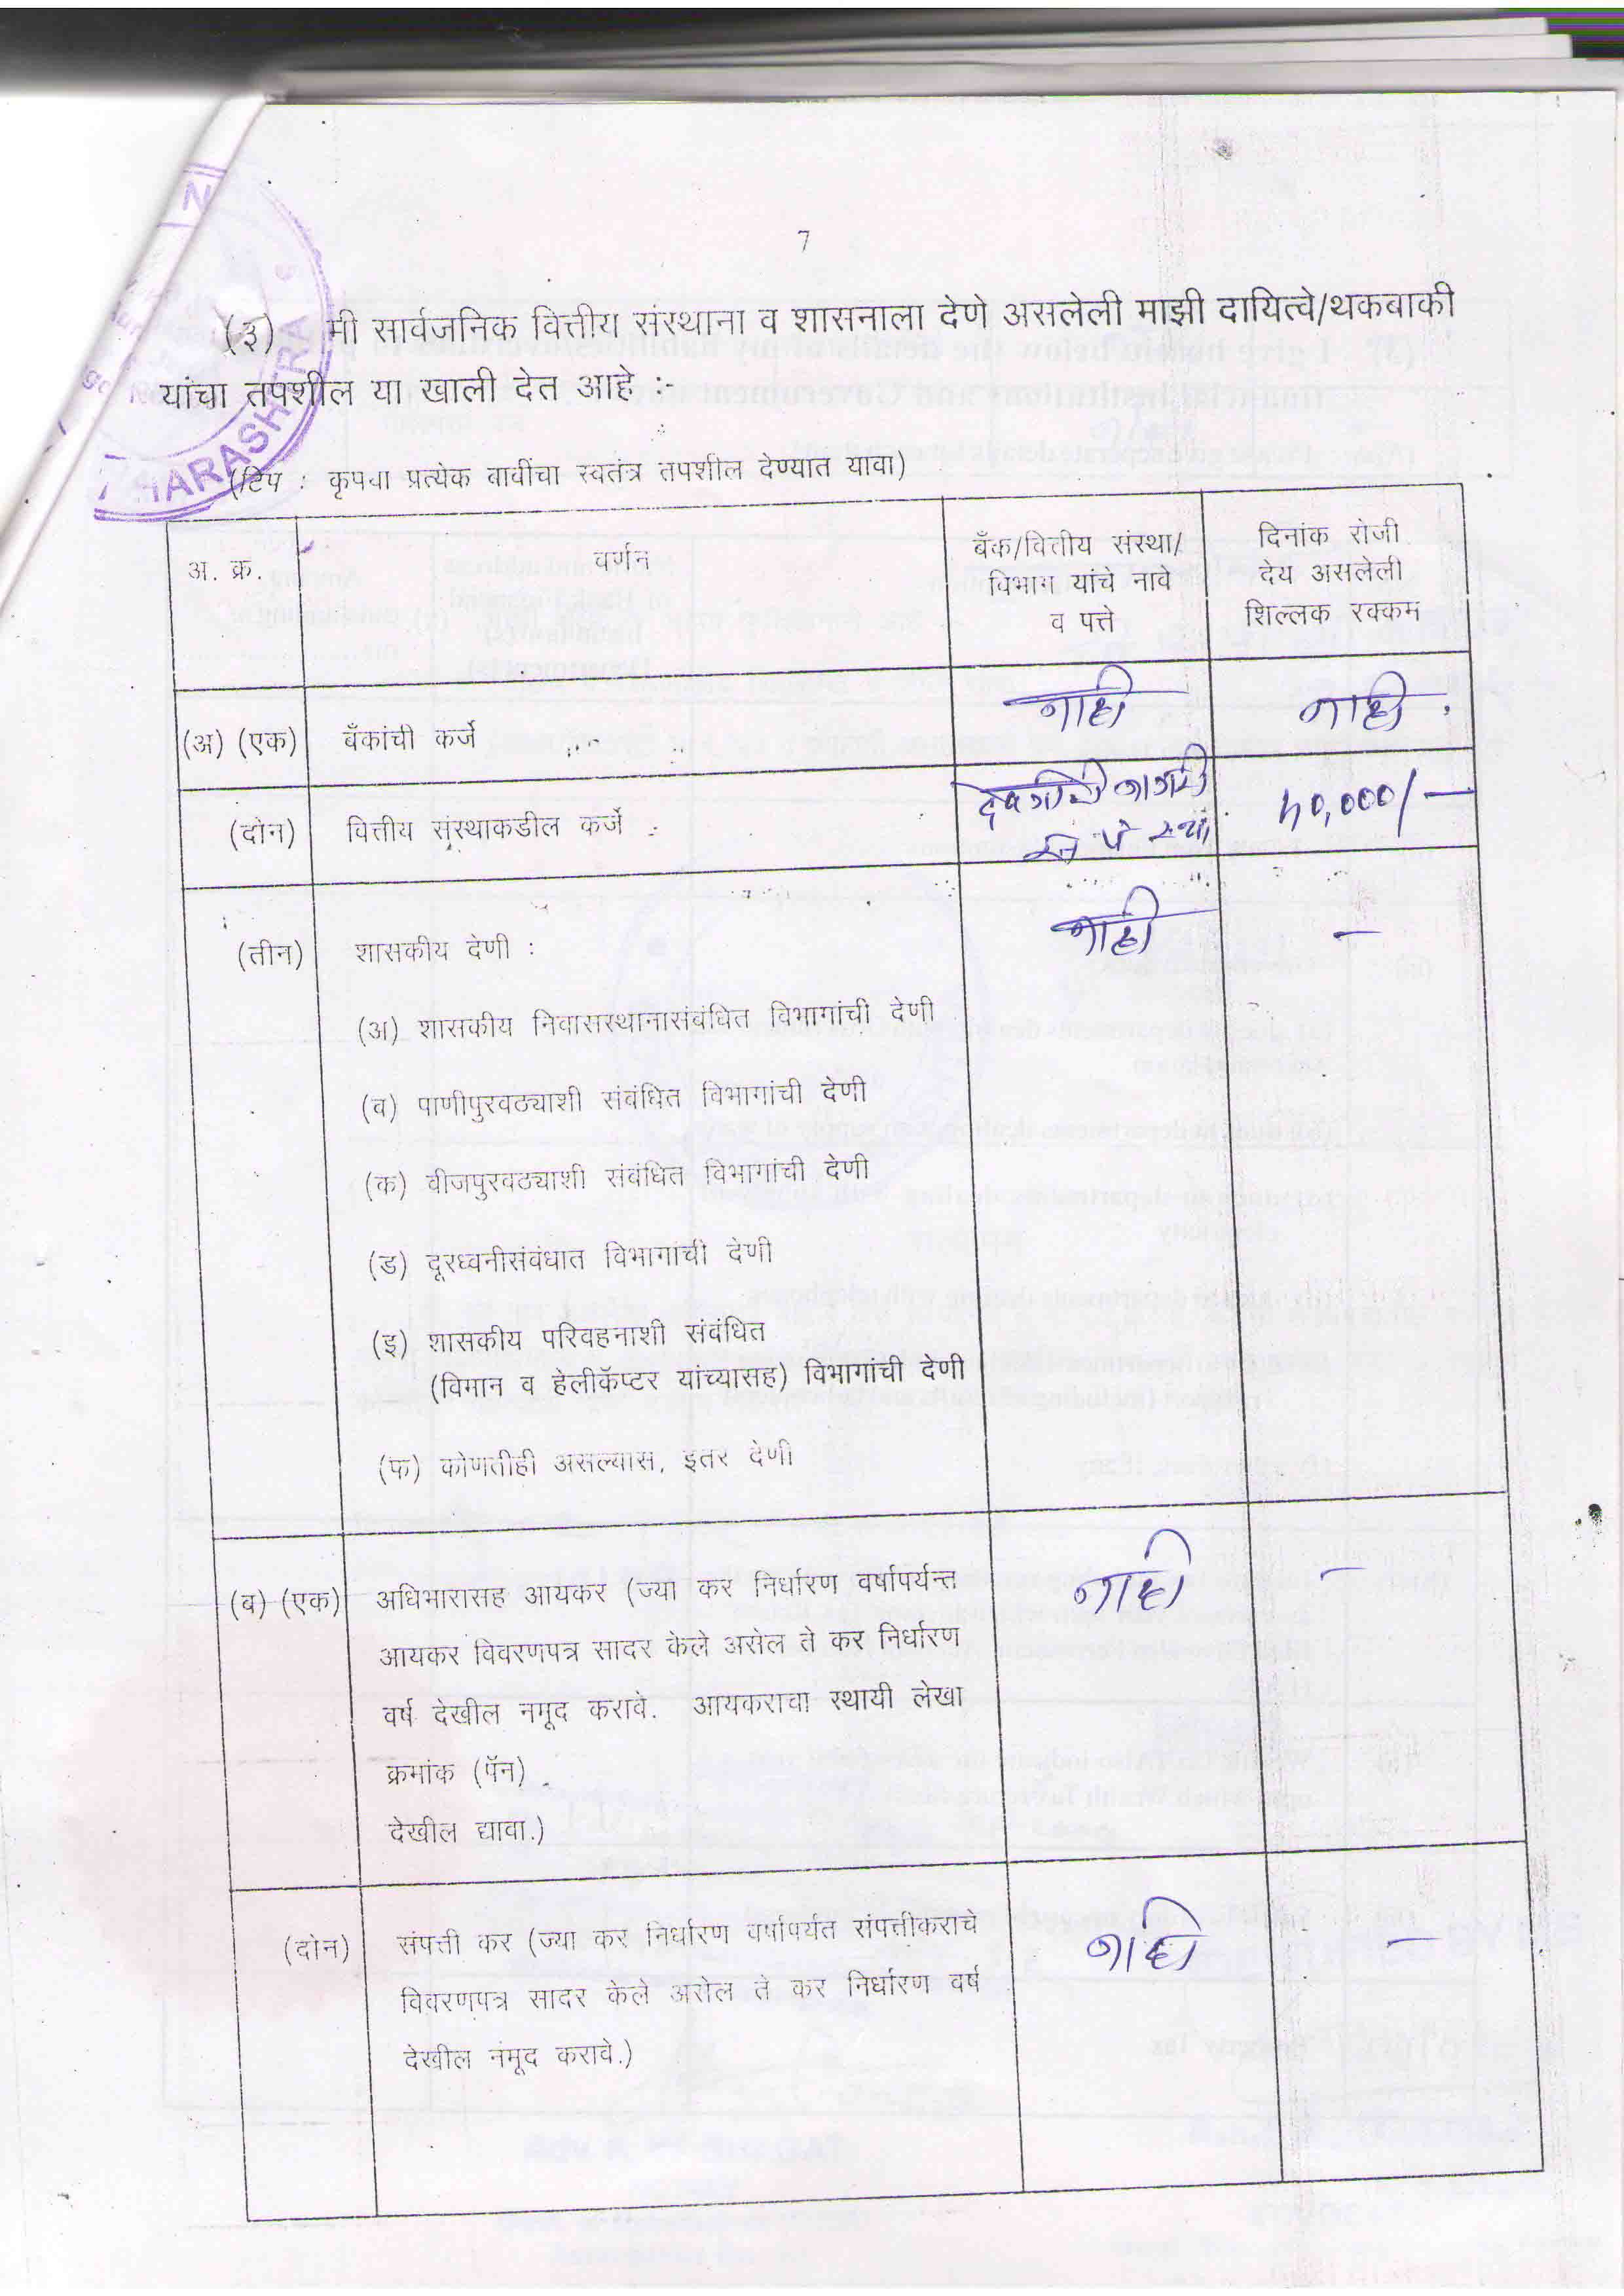 7
(३) मी सार्वजनिक वित्तीय संस्थाना व शासनाला देणे असलेली माझी दायित्वे/थकबाकी
यांचा तपशील या खाली देत आहे :-
(टिप : कृपया प्रत्येक बाबींचा स्वतंत्र तपशील देण्यात यावा)
HARASHTRA
अ. क्र.
वर्णन
बँक/वित्तीय संस्था/
विभाग यांचे नावे
व पत्ते
दिनांक रोजी
देय असलेली
शिल्लक रक्कम
(अ) (एक) बँकांची कर्जे नाही नाही
(दोन) वित्तीय संस्थाकडील कर्जे देवगीरी नागरी ५०,०००/-
(तीन) शासकीय देणी : नाही —
(अ) शासकीय निवासस्थानासंबंधित विभागांची देणी
(ब) पाणीपुरवठ्याशी संबंधित विभागांची देणी
(क) वीजपुरवठ्याशी संबंधित विभागांची देणी
(ड) दूरध्वनीसंबंधात विभागांची देणी
(इ) शासकीय परिवहनाशी संबंधित
(विमान व हेलीकॅप्टर यांच्यासह) विभागांची देणी
(फ) कोणतीही असल्यास, इतर देणी
(ब) (एक) अधिभारासह आयकर (ज्या कर निर्धारण वर्षापर्यन्त नाही —
आयकर विवरणपत्र सादर केले असेल ते कर निर्धारण
वर्ष देखील नमूद करावे. आयकराचा स्थायी लेखा
क्रमांक (पॅन)
देखील द्यावा.)
(दोन) संपत्ती कर (ज्या कर निर्धारण वर्षापर्यत संपत्तीकराचे नाही —
विवरणपत्र सादर केले असेल ते कर निर्धारण वर्ष
देखील नंमूद करावे.)